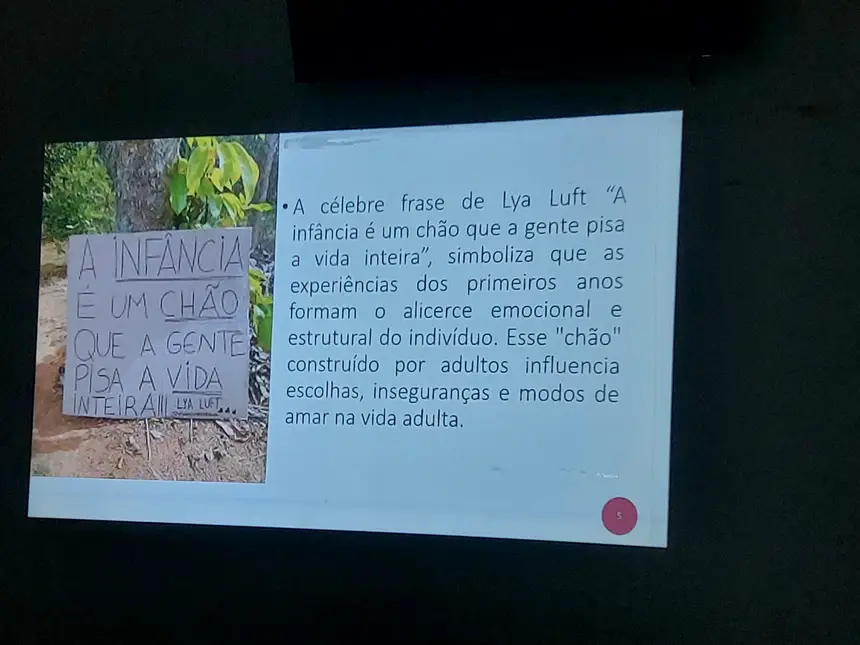 A INFÂNCIA
É UM CHÃO
QUE A GENTE
PISA A VIDA
INTEIRA!!! LYA LUFT...
• A célebre frase de Lya Luft “A
infância é um chão que a gente pisa
a vida inteira”, simboliza que as
experiências dos primeiros anos
formam o alicerce emocional e
estrutural do indivíduo. Esse "chão"
construído por adultos influencia
escolhas, inseguranças e modos de
amar na vida adulta.
5